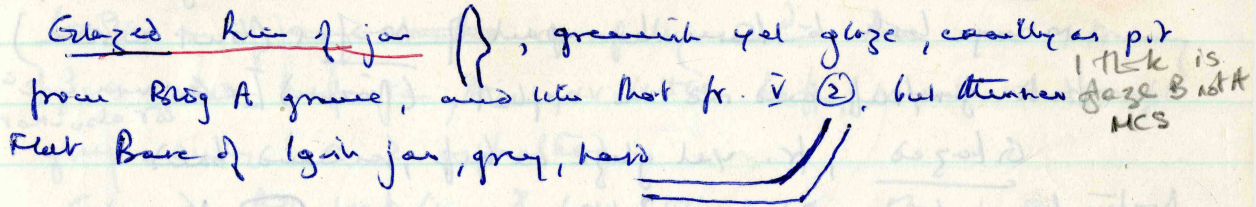 Glazed Rim of jar , greenish yel glaze, exactly as pit
from Bldg A grave, and like that fr. V ②, but thinner
I think is glaze B not A
MCS
Flat Base of again jar, grey, hard